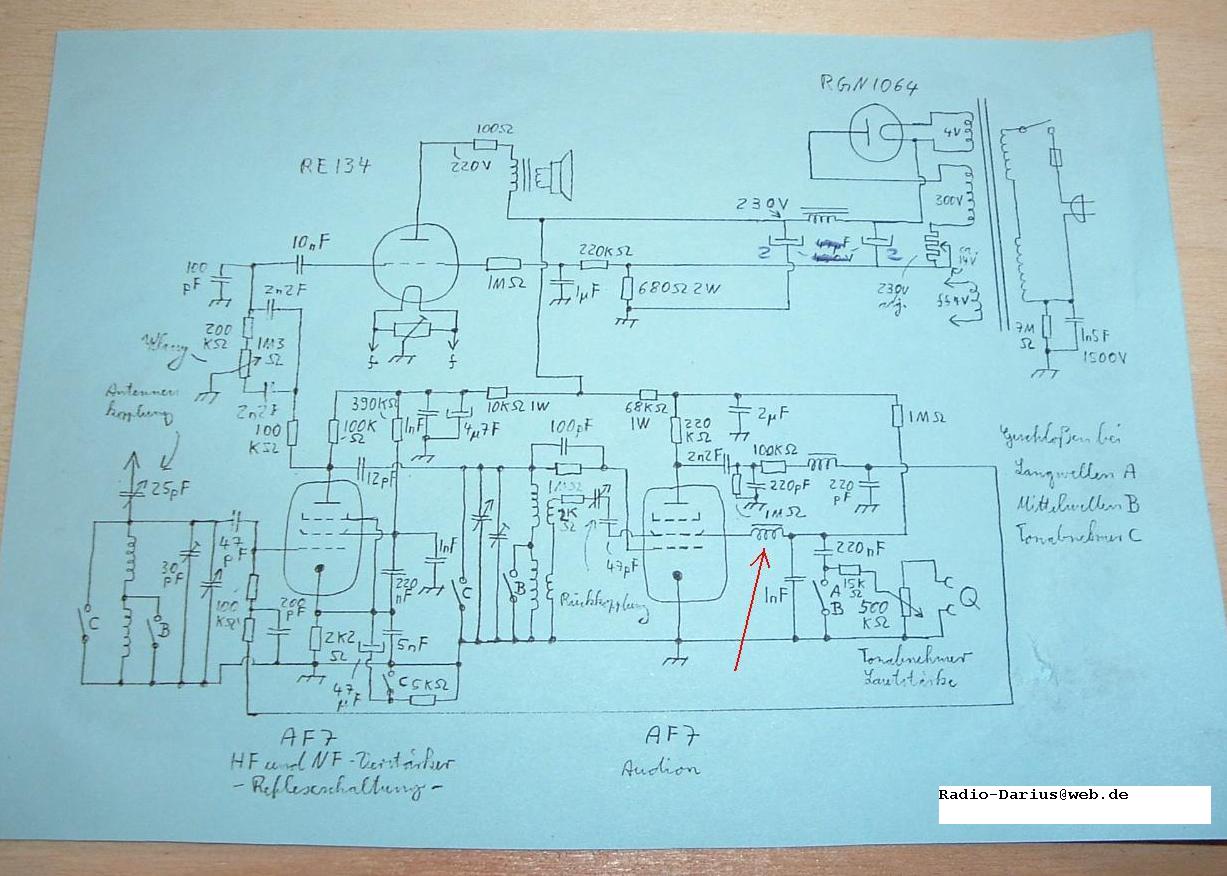 RGN1064
4V
100Ω
220V
RE134
230V
300V
10nF
220KΩ
100
pF
1MΩ
1µF
680Ω2W
2
2
ca.
230V
2n2F
200
KΩ
1M3
Ω
f
f
7M
Ω
1n5F
1500V
Antennen
kopplung
2n2F
390KΩ
10KΩ 1W
68KΩ
1W
2µF
100
KΩ
100K
Ω
1nF
4µ7F
100pF
220
KΩ
1MΩ
2n2F
100KΩ
Geschloßen bei
25pF
12pF
220pF
220
pF
Langwellen A
1MΩ
Mittelwellen B
2K
Ω
Tonabnehmer C
47
pF
1nF
47pF
220nF
30
pF
220
nF
C
B
1nF
15K
Ω
C
B
100
KΩ
200
pF
Rückkopplung
A
B
500
KΩ
2K2
Ω
5nF
47
µF
C
5KΩ
Tonabnehmer
Lautstärke
AF7
HF und NF-Verstärker
- Reflexschaltung -
AF7
Audion
Radio-Darius@web.de